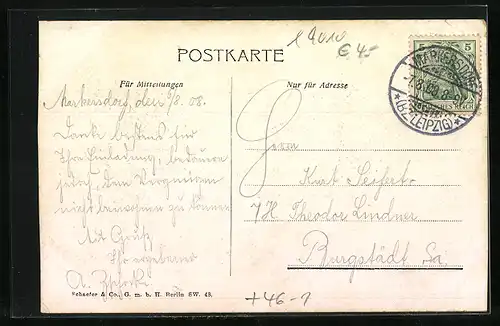 19010
€ 4.-
POSTKARTE
Für Mitteilungen
Nur für Adresse
5 5
MARKERSDORF
(BZ. LEIPZIG)
REICH
Markersdorf, den 7/8. 08.
Danke bestens für
Ihre Einladung, bedaure
jedoch, dem Vergnügen
nicht beiwohnen zu können
Mit Gruß
Ihr ergebener
A.
Herrn
Kurt Seifert
Theodor Lindner
Burgstädt Sa.
Schaefer & Co., G. m. b. H. Berlin SW. 48.
+46-1